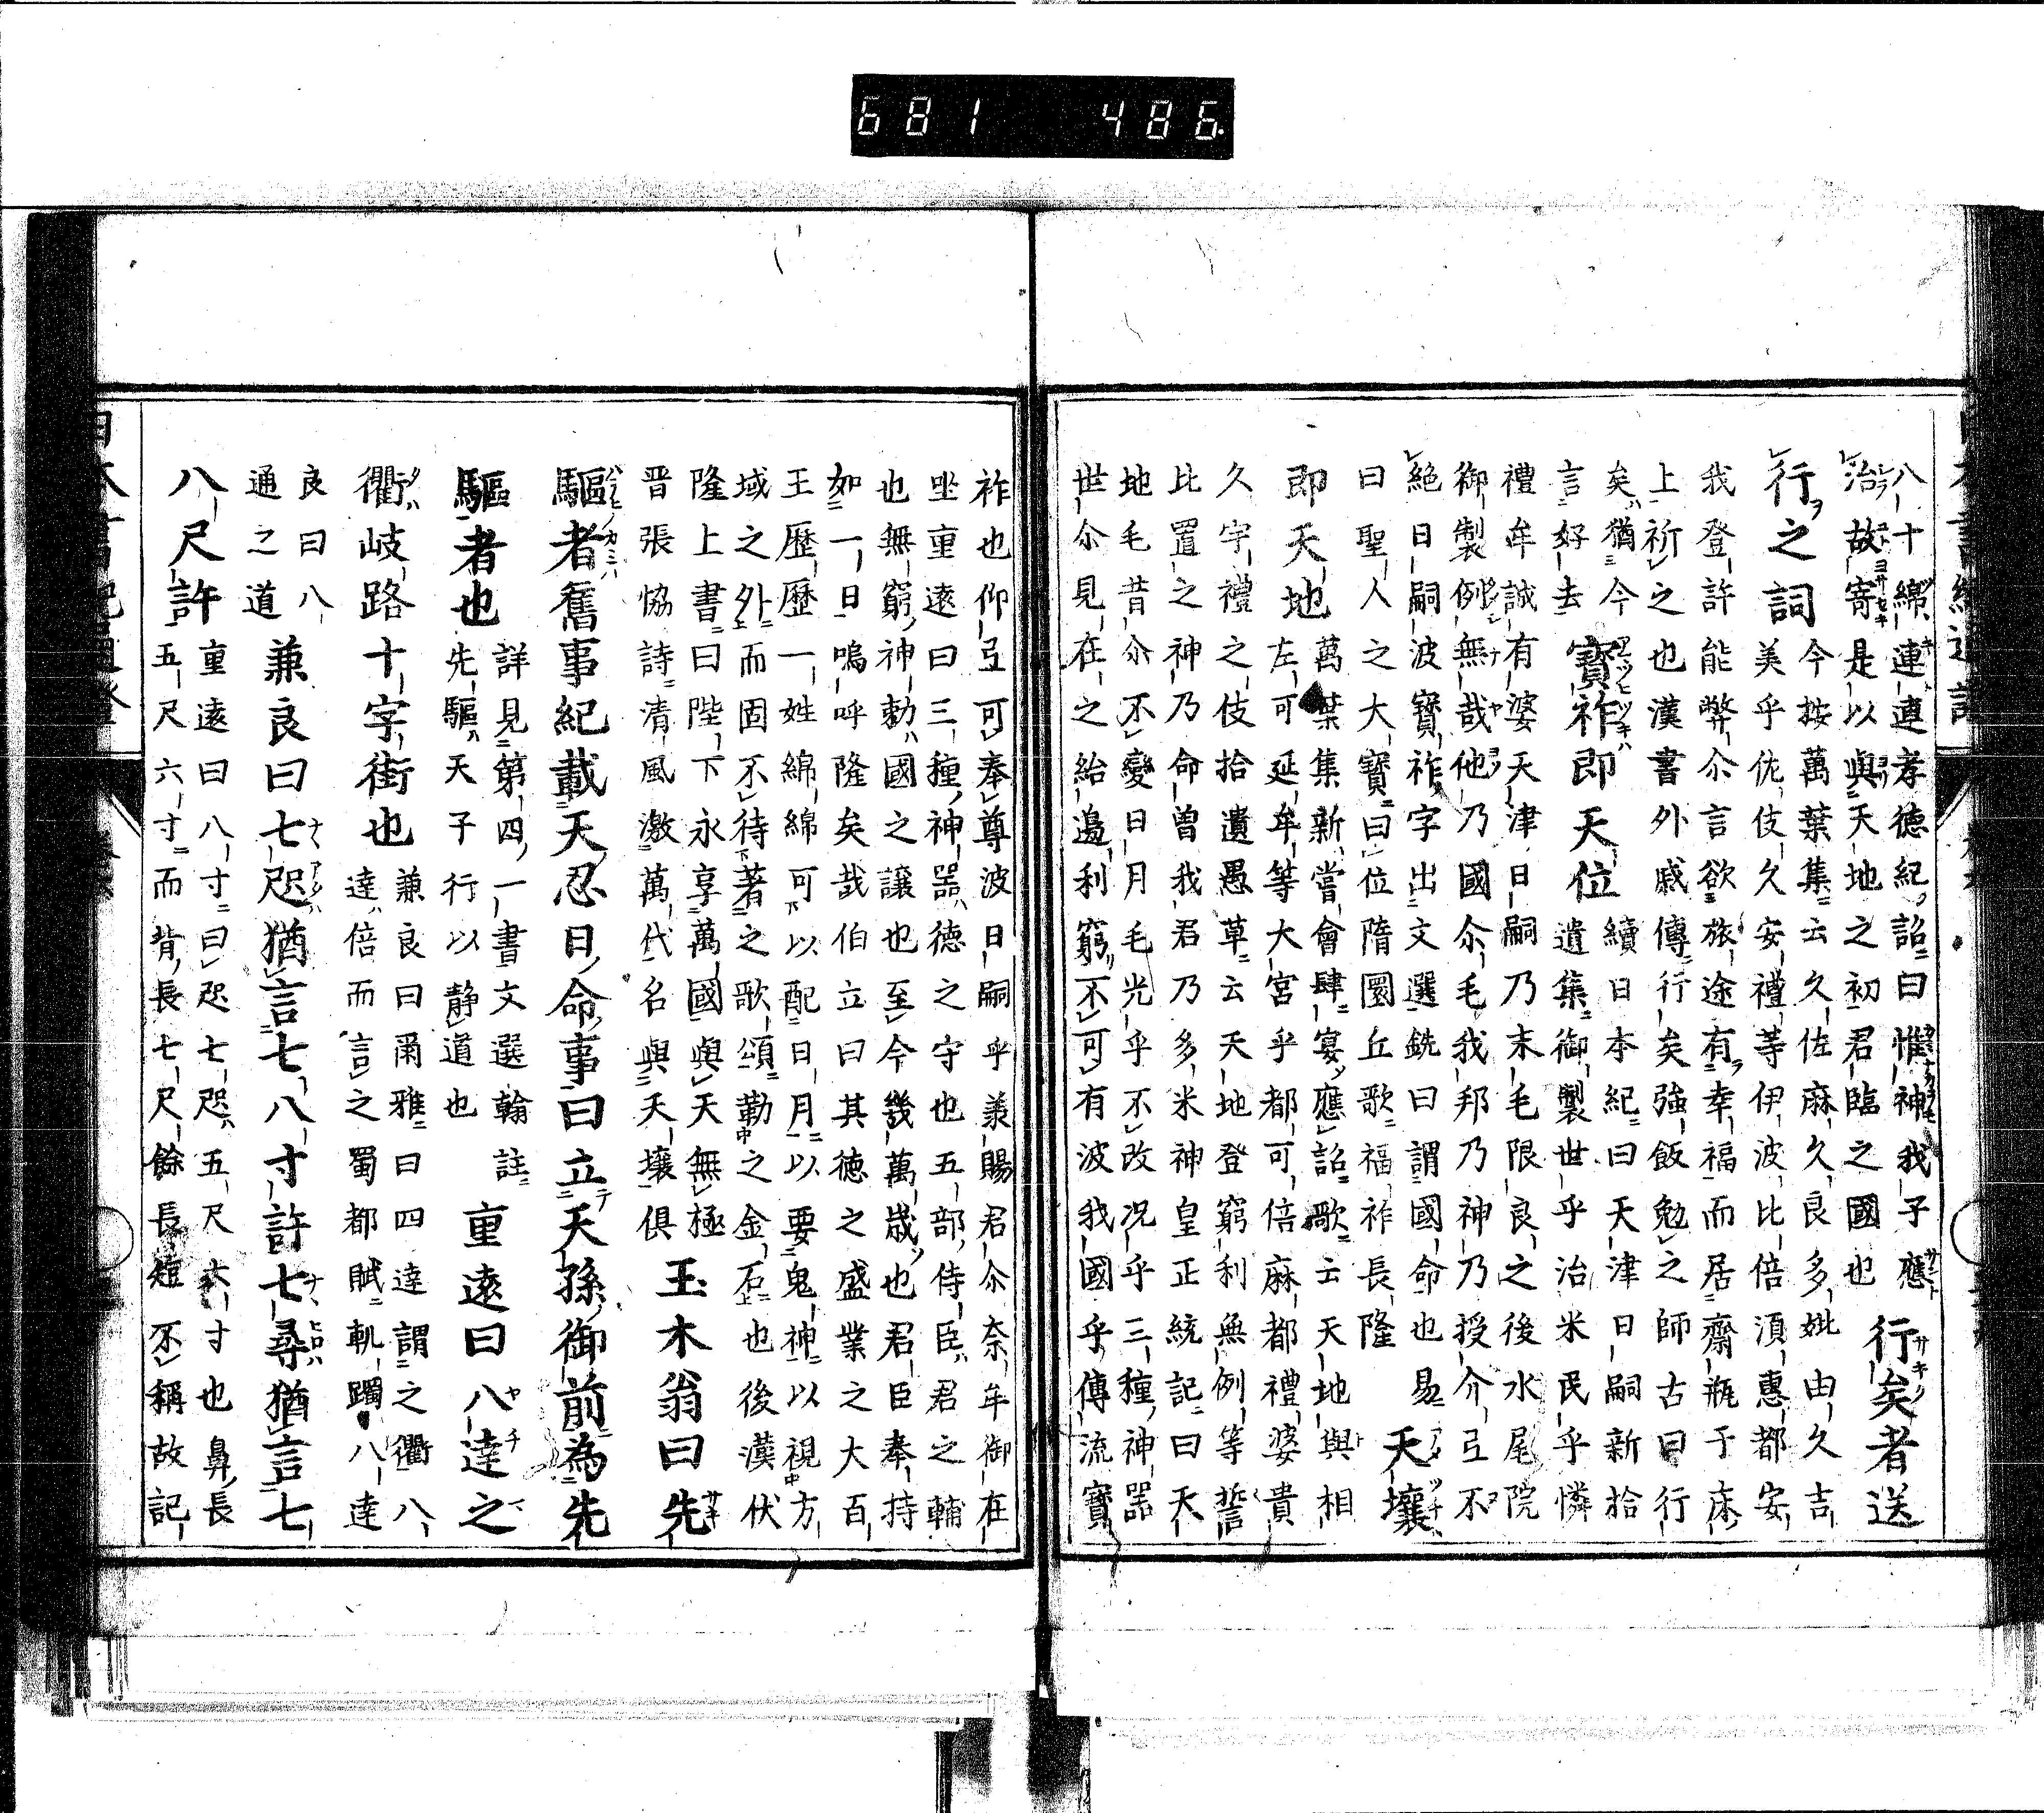 681 486
八十綿連連孝徳紀詔曰惟神我子應
治故寄是以與天地之初君臨之國也
行矣者送
行之詞
今按萬葉集云久佐麻久良多妣由久吉
美乎佐伎久安禮等伊波比倍須惠都安
我登許能弊尒言欲旅途有幸福而居齋瓶于床
上祈之也漢書外戚傳行矣強飯勉之師古曰行
矣猶今
言好去
寶祚即天位
續日本紀曰天津日嗣新拾
遺集御製世乎治米民乎憐
禮牟誠有婆天津日嗣乃末毛限良之後水尾院
御製例無哉他乃國尒毛我邦乃神乃授介弖不
絶日嗣波寶祚字出文選銑曰謂國命也易
曰聖人之大寶曰位隋圜丘歌福祚長隆
天壤
即天地
萬葉集新嘗會肆宴應詔歌云天地與相
左可延牟等大宮乎都可倍麻都禮婆貴
久宇禮之伎拾遺愚草云天地登窮利無例等誓
比置之神乃命曽我君乃多米神皇正統記曰天
地毛昔尒不變日月毛光乎不改況乎三種神器
世尒見在之給邉利窮不可有波我國乎傳流寶
祚也仰弖可奉尊波日嗣乎羕賜君尒奈牟御在
坐重遠曰三種神器徳之守也五部侍臣君之輔
也無窮神勅國之譲也至今幾萬歳也君臣奉持
如一日嗚呼隆矣哉伯立曰其徳之盛業之大百
王歷歷一姓綿綿可以配日月以要鬼神以視方
域之外而固不待著之歌頌勤之金石也後漢伏
隆上書曰陛下永享萬國與天無極
晋張協詩清風激萬代名與天壤俱
玉木翁曰先
驅者舊事紀載天忍日命事曰立天孫御前為先
驅者也
詳見第四一書文選翰註
先驅天子行以静道也
重遠曰八達之
衢岐路十字街也
兼良曰爾雅曰四達謂之衢八
達倍而言之蜀都賦軌躅八達
良曰八
通之道
兼良曰七咫猶言七八寸許七尋猶言七
八尺許
重遠曰八寸曰咫七咫五尺六寸也鼻長
五尺六寸而背長七尺餘長短不稱故記